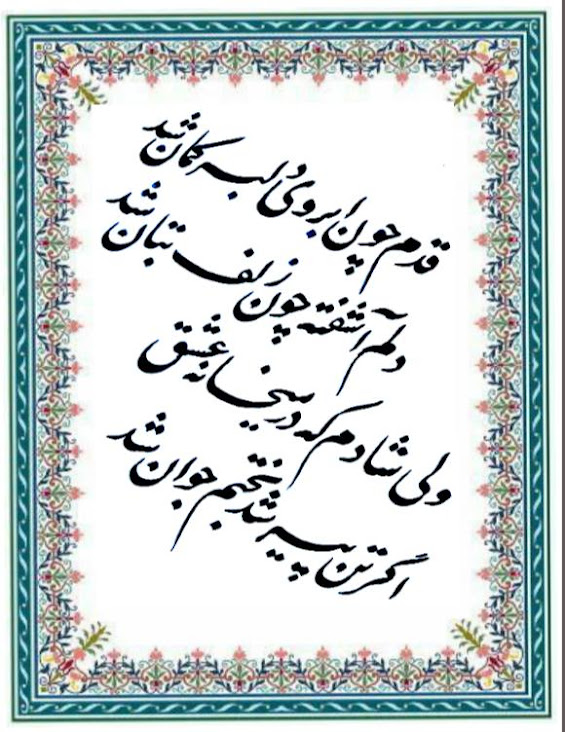 قدم چون ابروی دلبر کمان شد
دلم آشفته چون زلف بتان شد
ولی شادم که در میخانه عشق
اگر تن پیر شد بختم جوان شد